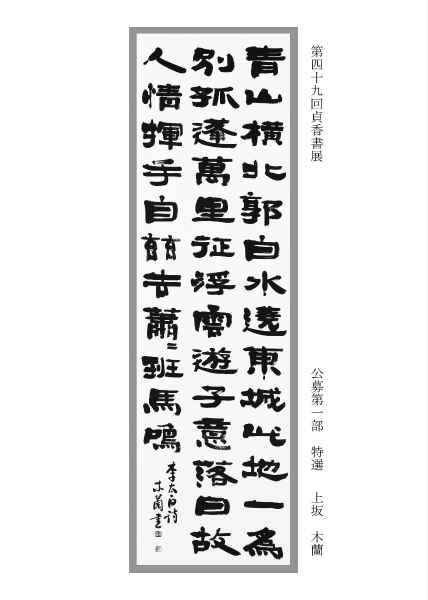 第四十九回貞香書展
公募第一部　特選　上坂　木蘭
青山横北郭白水遶東城此地一為
別孤蓬萬里征浮雲遊子意落日故
人情揮手自茲去蕭〻班馬鳴
李太白詩
木蘭書